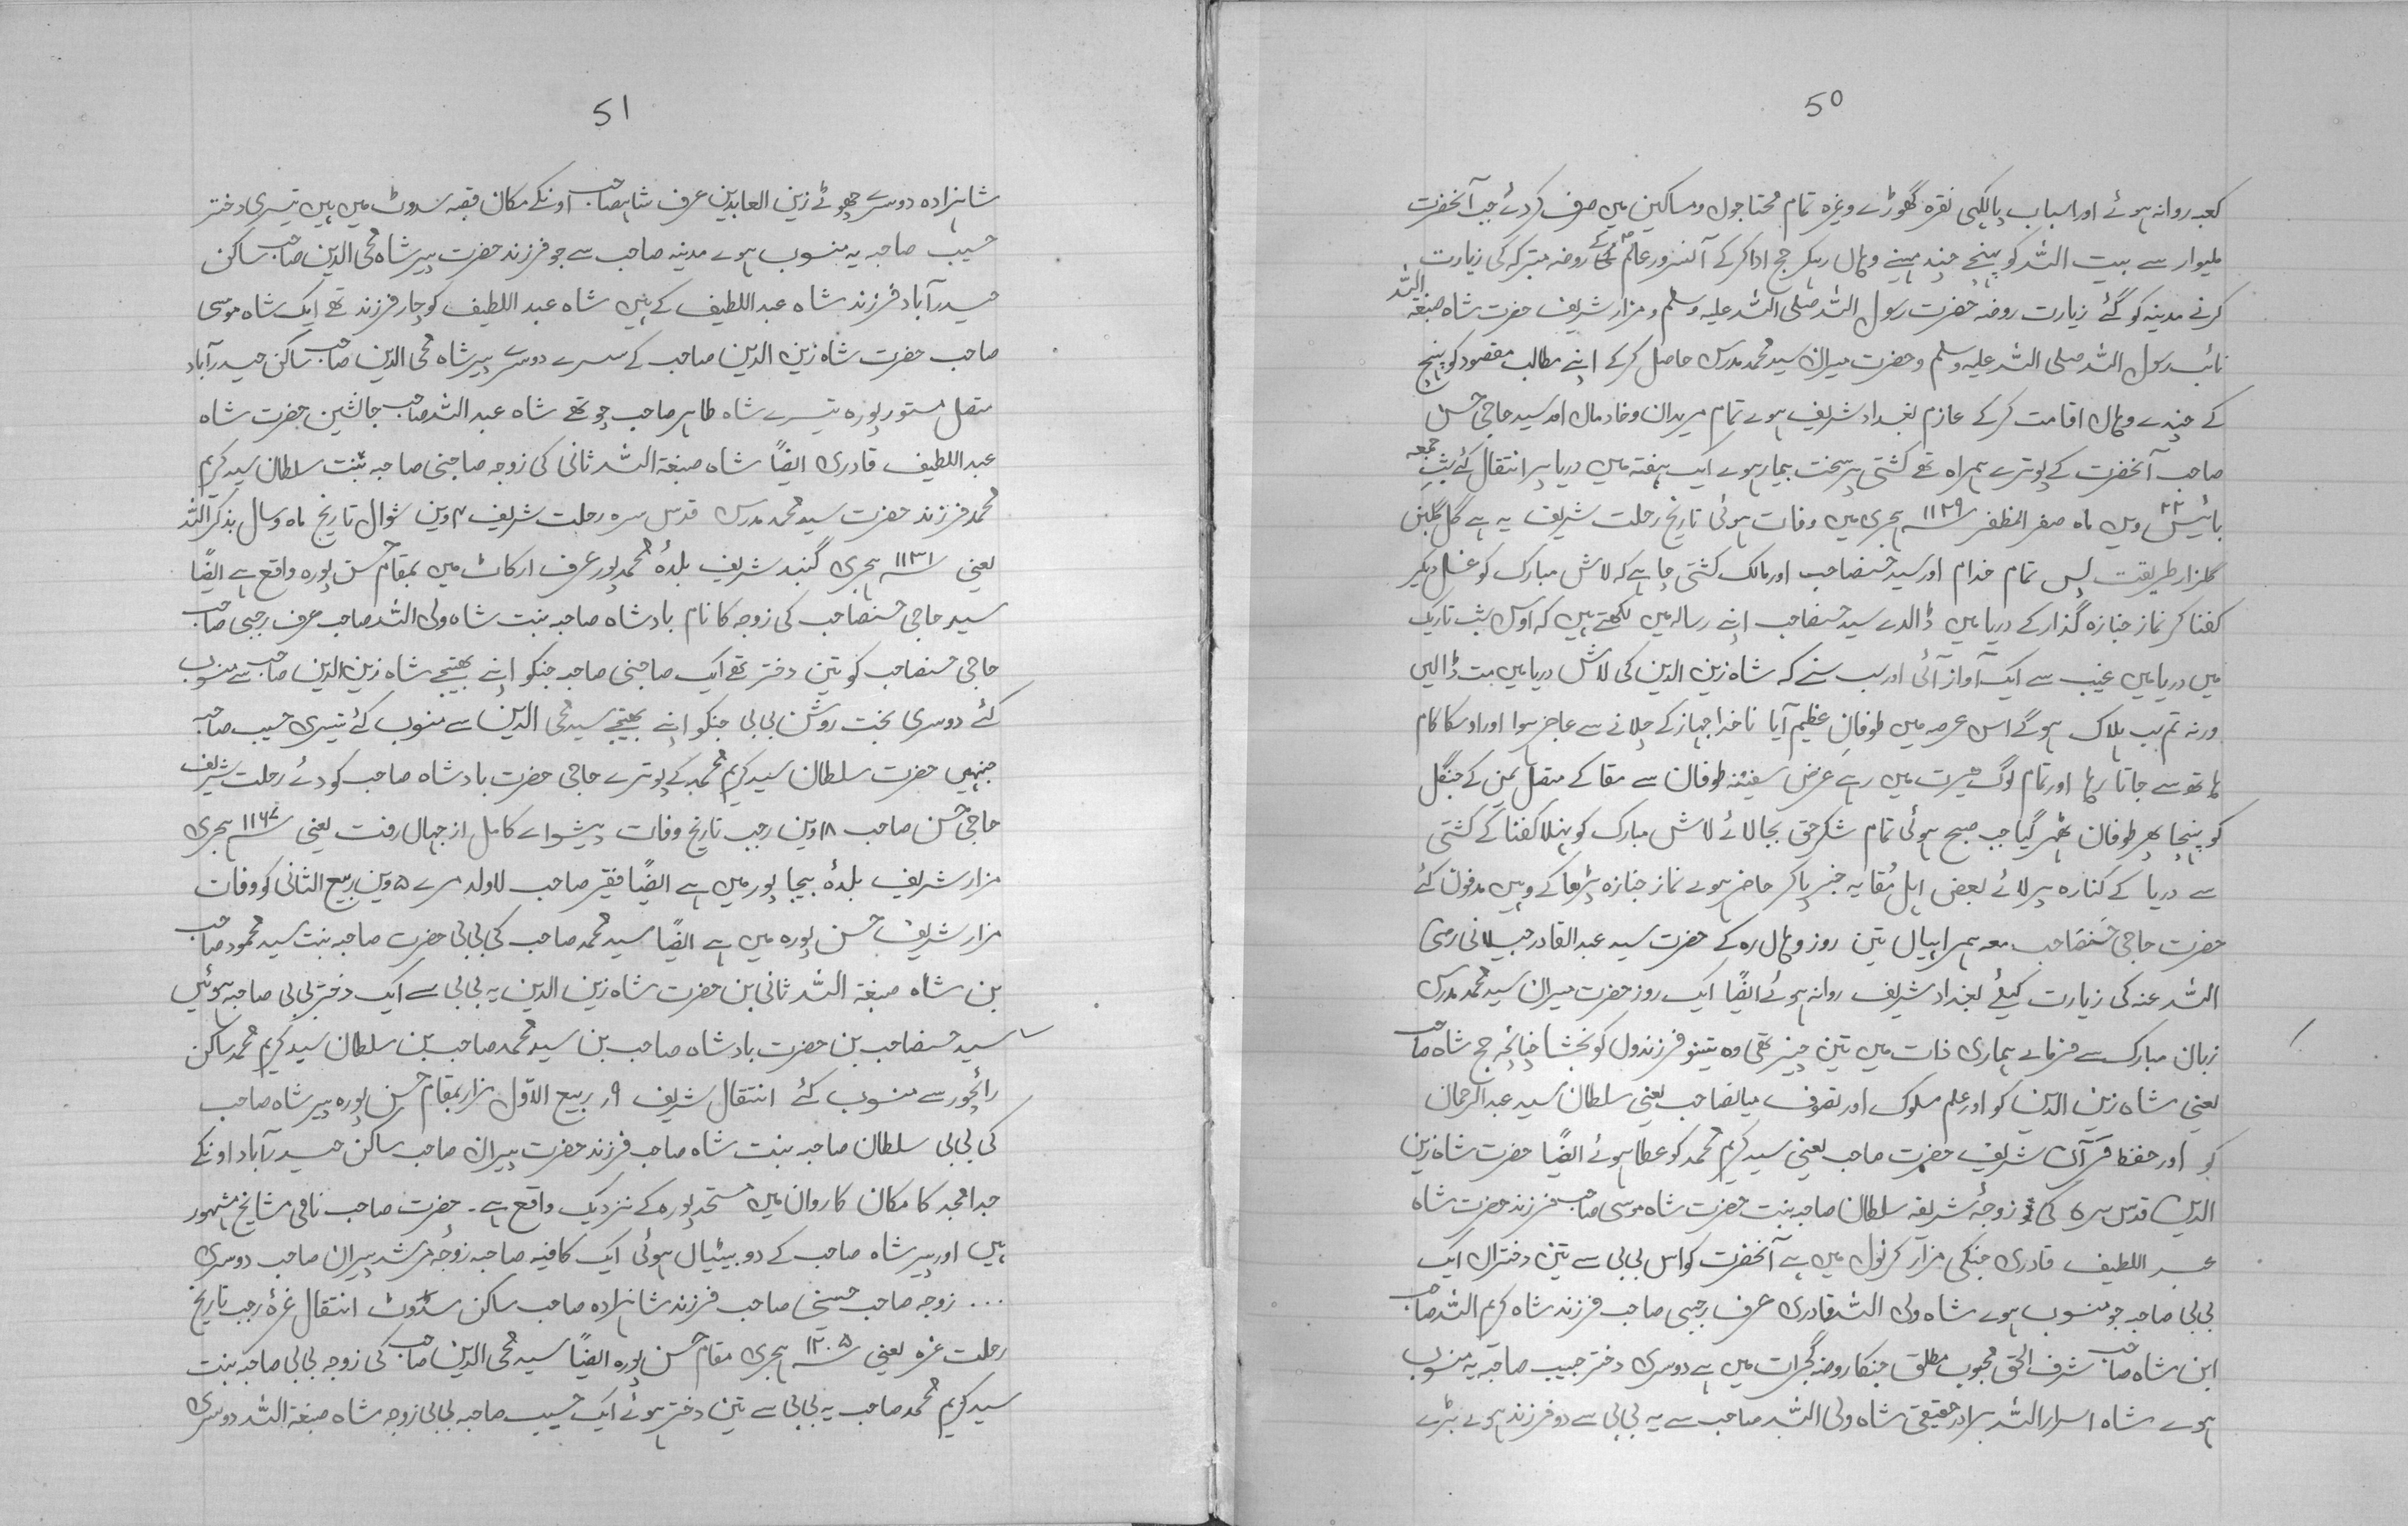 50
کعبہ روانہ ہوئے اور اسباب پالکھی نقرہ گھوڑے وغیرہ تمام محتاجوں و مساکین میں صرف کر دئے جب آنحضرت
ملیوار سے بیت اللہ کو پہنچے چند مہینے وہاں رہکر حج ادا کر کے آنسرور عالم ؐ کے روضہ متبرکہ کی زیارت
کرنے مدینہ کو گئے زیارت روضہ حضرت رسول اللہ صلی اللہ علیہ وسلم و مزار شریف حضرت شاہ صبغۃ اللہ
نائب رسول اللہ صلی اللہ علیہ وسلم و حضرت میراں سید محمد مدرس حاصل کر کے اپنے مطالب مقصود کو پہنچ
کے چندے وہاں اقامت کر کے عازم بغداد شریف ہوے تمام مریدان و خادماں اور سید حاجی حسن
صاحب آنحضرت کے پوترے ہمراہ تھے کشتی پر سخت بیمار ہوے ایک ہفتہ میں دریا پر انتقال کئے شب جمعہ
بائیس ۲۲ ویں ماہ صفر المظفر ۱۱۲۹ سنہ ہجری میں وفات ہوئی تاریخ رحلت شریف یہ ہے گل گلبن
گلزار طریقت پس تمام خدام اور سید حسنصاحب اور مالک کشتی چاہے کہ لاش مبارک کو غسل دیکر
کفنا کر نماز جنازہ گذار کے دریا میں ڈالدے سید حسنصاحب اپنے رسالہ میں لکھتے ہیں کہ اوس شب تاریک
میں دریا میں غیب سے ایک آواز آئی اور سب سنے کہ شاہ زین الدین کی لاش دریا میں مت ڈالیں
ورنہ تم سب ہلاک ہوگے اس عرصہ میں طوفان عظیم آیا ناخدا جہاز کے چلانے سے عاجز ہوا اور اوسکا کام
ہاتھ سے جاتا رہا اور تمام لوگ حیرت میں رہے غرض سفینہ طوفان سے مقا کے متصل یمن کے جنگل
کو پہنچا پھر طوفان ٹھہر گیا جب صبح ہوئی تمام شکر حق بجا لائے لاش مبارک کو نہلا کفنا کے کشتی
سے دریا کے کنارہ پر لائے بعض اہل مُقا یہ خبر پا کر حاضر ہوے نماز جنازہ پڑھا کے وہیں مدفون کئے
حضرت حاجی حسنصاحب معہ ہمراہیاں تین روز وہاں رہ کے حضرت سید عبدالقادر جیلانی رضی
اللہ عنہ کی زیارت کیلئے بغداد شریف روانہ ہوئے ایضًا ایک روز حضرت میراں سید محمد مدرس
زبان مبارک سے فرمائے ہماری ذات میں تین چیز تھی وہ تینو فرزندوں کو بخشا چنانچہ حج شاہ صاحب
یعنی شاہ زین الدین کو اور علم سلوک اور تصوف میانصاحب یعنی سلطان سید عبدالرحمان
کو اور حفظ قرآن شریف حضرت صاحب یعنی سید کریم محمد کو عطا ہوئے ایضًا حضرت شاہ زین
الدین قدس سرہ کی زوجۂ شریفہ سلطان صاحبہ بنت حضرت شاہ موسی صاحب فرزند حضرت شاہ
عبد اللطیف قادری جنکی مزار کرنول میں ہے آنحضرت کو اس بی بی سے تین دختراں ایک
بی بی صاحبہ جو منسوب ہوے شاہ ولی اللہ قادری عرف رجبی صاحب فرزند شاہ کریم اللہ صاحب
ابن شاہ صاحب شرف الحق محبوب مطلق جنکا روضہ گجرات میں ہے دوسری دختر حبیب صاحبہ یہ منسوب
ہوے شاہ اسرار اللہ برادر حقیقی شاہ ولی اللہ صاحب سے یہ بی بی سے دو فرزند ہوے بڑے
51
شاہزادہ دوسرے چھوٹے زین العابدین عرف شاہصاحب اونکے مکان قصبہ سدوٹ میں ہیں تیسری دختر
حسیب صاحبہ یہ منسوب ہوے مدینہ صاحب سے جو فرزند حضرت پیر شاہ محی الدین صاحب ساکن
حیدرآباد فرزند شاہ عبد اللطیف کے ہیں شاہ عبد اللطیف کو چار فرزند تھے ایک شاہ موسی
صاحب حضرت شاہ زین الدین صاحب کے سسرے دوسرے پیر شاہ محی الدین صاحب ساکن حیدرآباد
متصل مستورپورہ تیسرے شاہ طاہر صاحب چوتھے شاہ عبد اللہ صاحب جانشین حضرت شاہ
عبد اللطیف قادری ایضًا شاہ صبغۃ اللہ ثانی کی زوجہ صاحبنی صاحبہ بنت سلطان سید کریم
محمد فرزند حضرت سید محمد مدرس قدس سرہ رحلت شریف ۴ وین شوال تاریخ ماہ و سال بذکر اللہ
یعنی ۱۱۳۱ سنہ ہجری گنبد شریف بلدۂ محمدپور عرف ارکاٹ میں بمقام حسن پورہ واقع ہے ایضًا
سید حاجی حسنصاحب کی زوجہ کا نام بادشاہ صاحبہ بنت شاہ ولی اللہ صاحب عرف رجبی صاحب
حاجی حسنصاحب کو تین دختر تھے ایک صاحبنی صاحبہ جنکو اپنے بھتیجے شاہ زین الدین صاحب سے منسوب
کئے دوسری بخت روشن بی بی جنکو اپنے بھتیجے سید محی الدین سے منسوب کئے تیسری حسیب صاحبہ
جنہیں حضرت سلطان سید کریم محمد کے پوترے حاجی حضرت بادشاہ صاحب کو دئے رحلت شریف
حاجی حسن صاحب ۱۸ وین رجب تاریخ وفات پیشواے کامل از جہاں رفت یعنی ۱۱۶۷ سنہ ہجری
مزار شریف بلدۂ بیجاپور میں ہے ایضًا فقیر صاحب لاولد مرے ۵ وین ربیع الثانی کو وفات
مزار شریف حسن پورہ میں ہے ایضًا سید محمد صاحب کی بی بی حضرت صاحبہ بنت سید محمود صاحب
بن شاہ صبغۃ اللہ ثانی بن حضرت شاہ زین الدین یہ بی بی سے ایک دختر بی بی صاحبہ ہوئیں
سید حسنصاحب بن حضرت بادشاہ صاحب بن سید محمد صاحب بن سلطان سید کریم محمد ساکن
رائچور سے منسوب کئے انتقال شریف ۹؍ ربیع الاوّل مزار بمقام حسن پورہ پیر شاہ صاحب
کی بی بی سلطان صاحبہ بنت شاہ صاحب فرزند حضرت پیراں صاحب ساکن حیدرآباد اونکے
جد امجد کا مکان کاروان میں مستعد پورہ کے نزدیک واقع ہے۔ حضرت صاحب نامی مشایخ مشہور
ہیں اور پیر شاہ صاحب کے دو بیٹیاں ہوئی ایک کافیہ صاحبہ زوجہ مرشد پیران صاحب دوسری
... زوجہ صاحب حسینی صاحب فرزند شاہزادہ صاحب ساکن سدوٹ انتقال غرۂ رجب تاریخ
رحلت غرہ یعنی ۱۲۰۵ سنہ ہجری مقام حسن پورہ ایضًا سید محی الدین صاحب کی زوجہ بی بی صاحبہ بنت
سید کریم محمد صاحب یہ بی بی سے تین دختر ہوئے ایک حسیب صاحبہ بی بی زوجہ شاہ صبغۃ اللہ دوسری